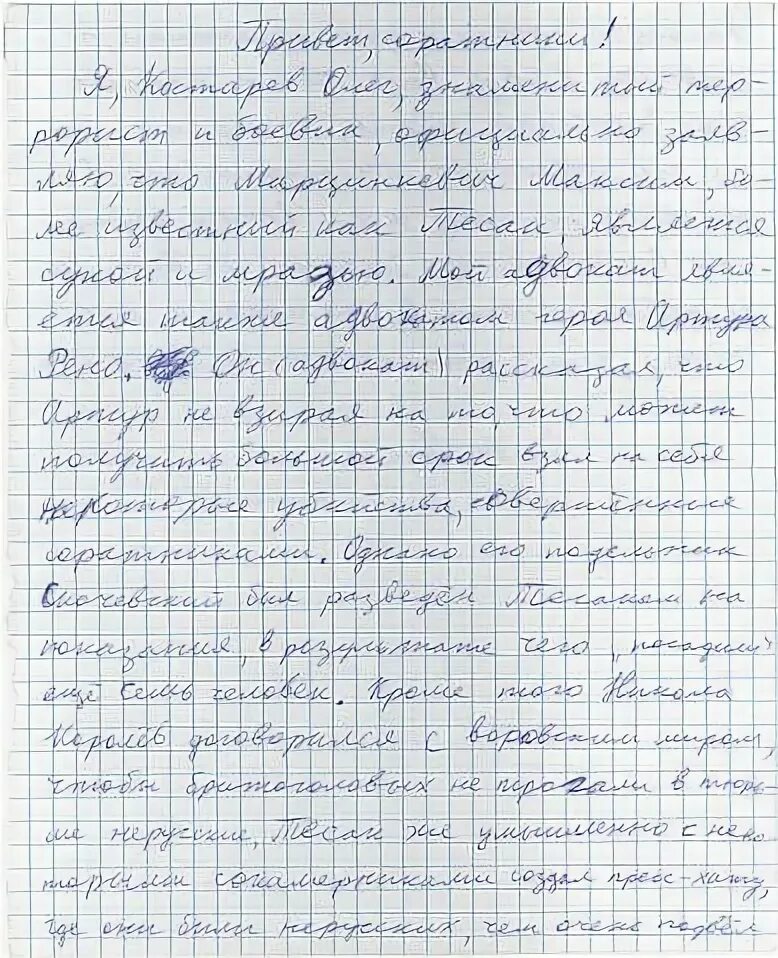 Привет, соратники!
Я, Костарев Олег, знаменитый тер-
рорист и боевик, официально заяв-
ляю, что Марцинкевич Максим, бо-
лее известный как Тесак, является
сукой и мразью. Мой адвокат явля-
ется также адвокатом героя Артура
Рено. Он (адвокат) рассказал, что
Артур не взирая на то, что может
получить большой срок взял на себя
некоторые убийства, совершённые
соратниками. Однако его подельник
Скачевский был разведён Тесаком на
показания, в результате чего "посадили"
ещё семь человек. Кроме того Никола
Королёв договорился с воровским миром,
чтобы бритоголовых не трогали в тюрь-
ме нерусские, Тесак же умышленно с неко
торыми сокамерниками создал пресс-хату,
где они били нерусских, чем очень подвёл